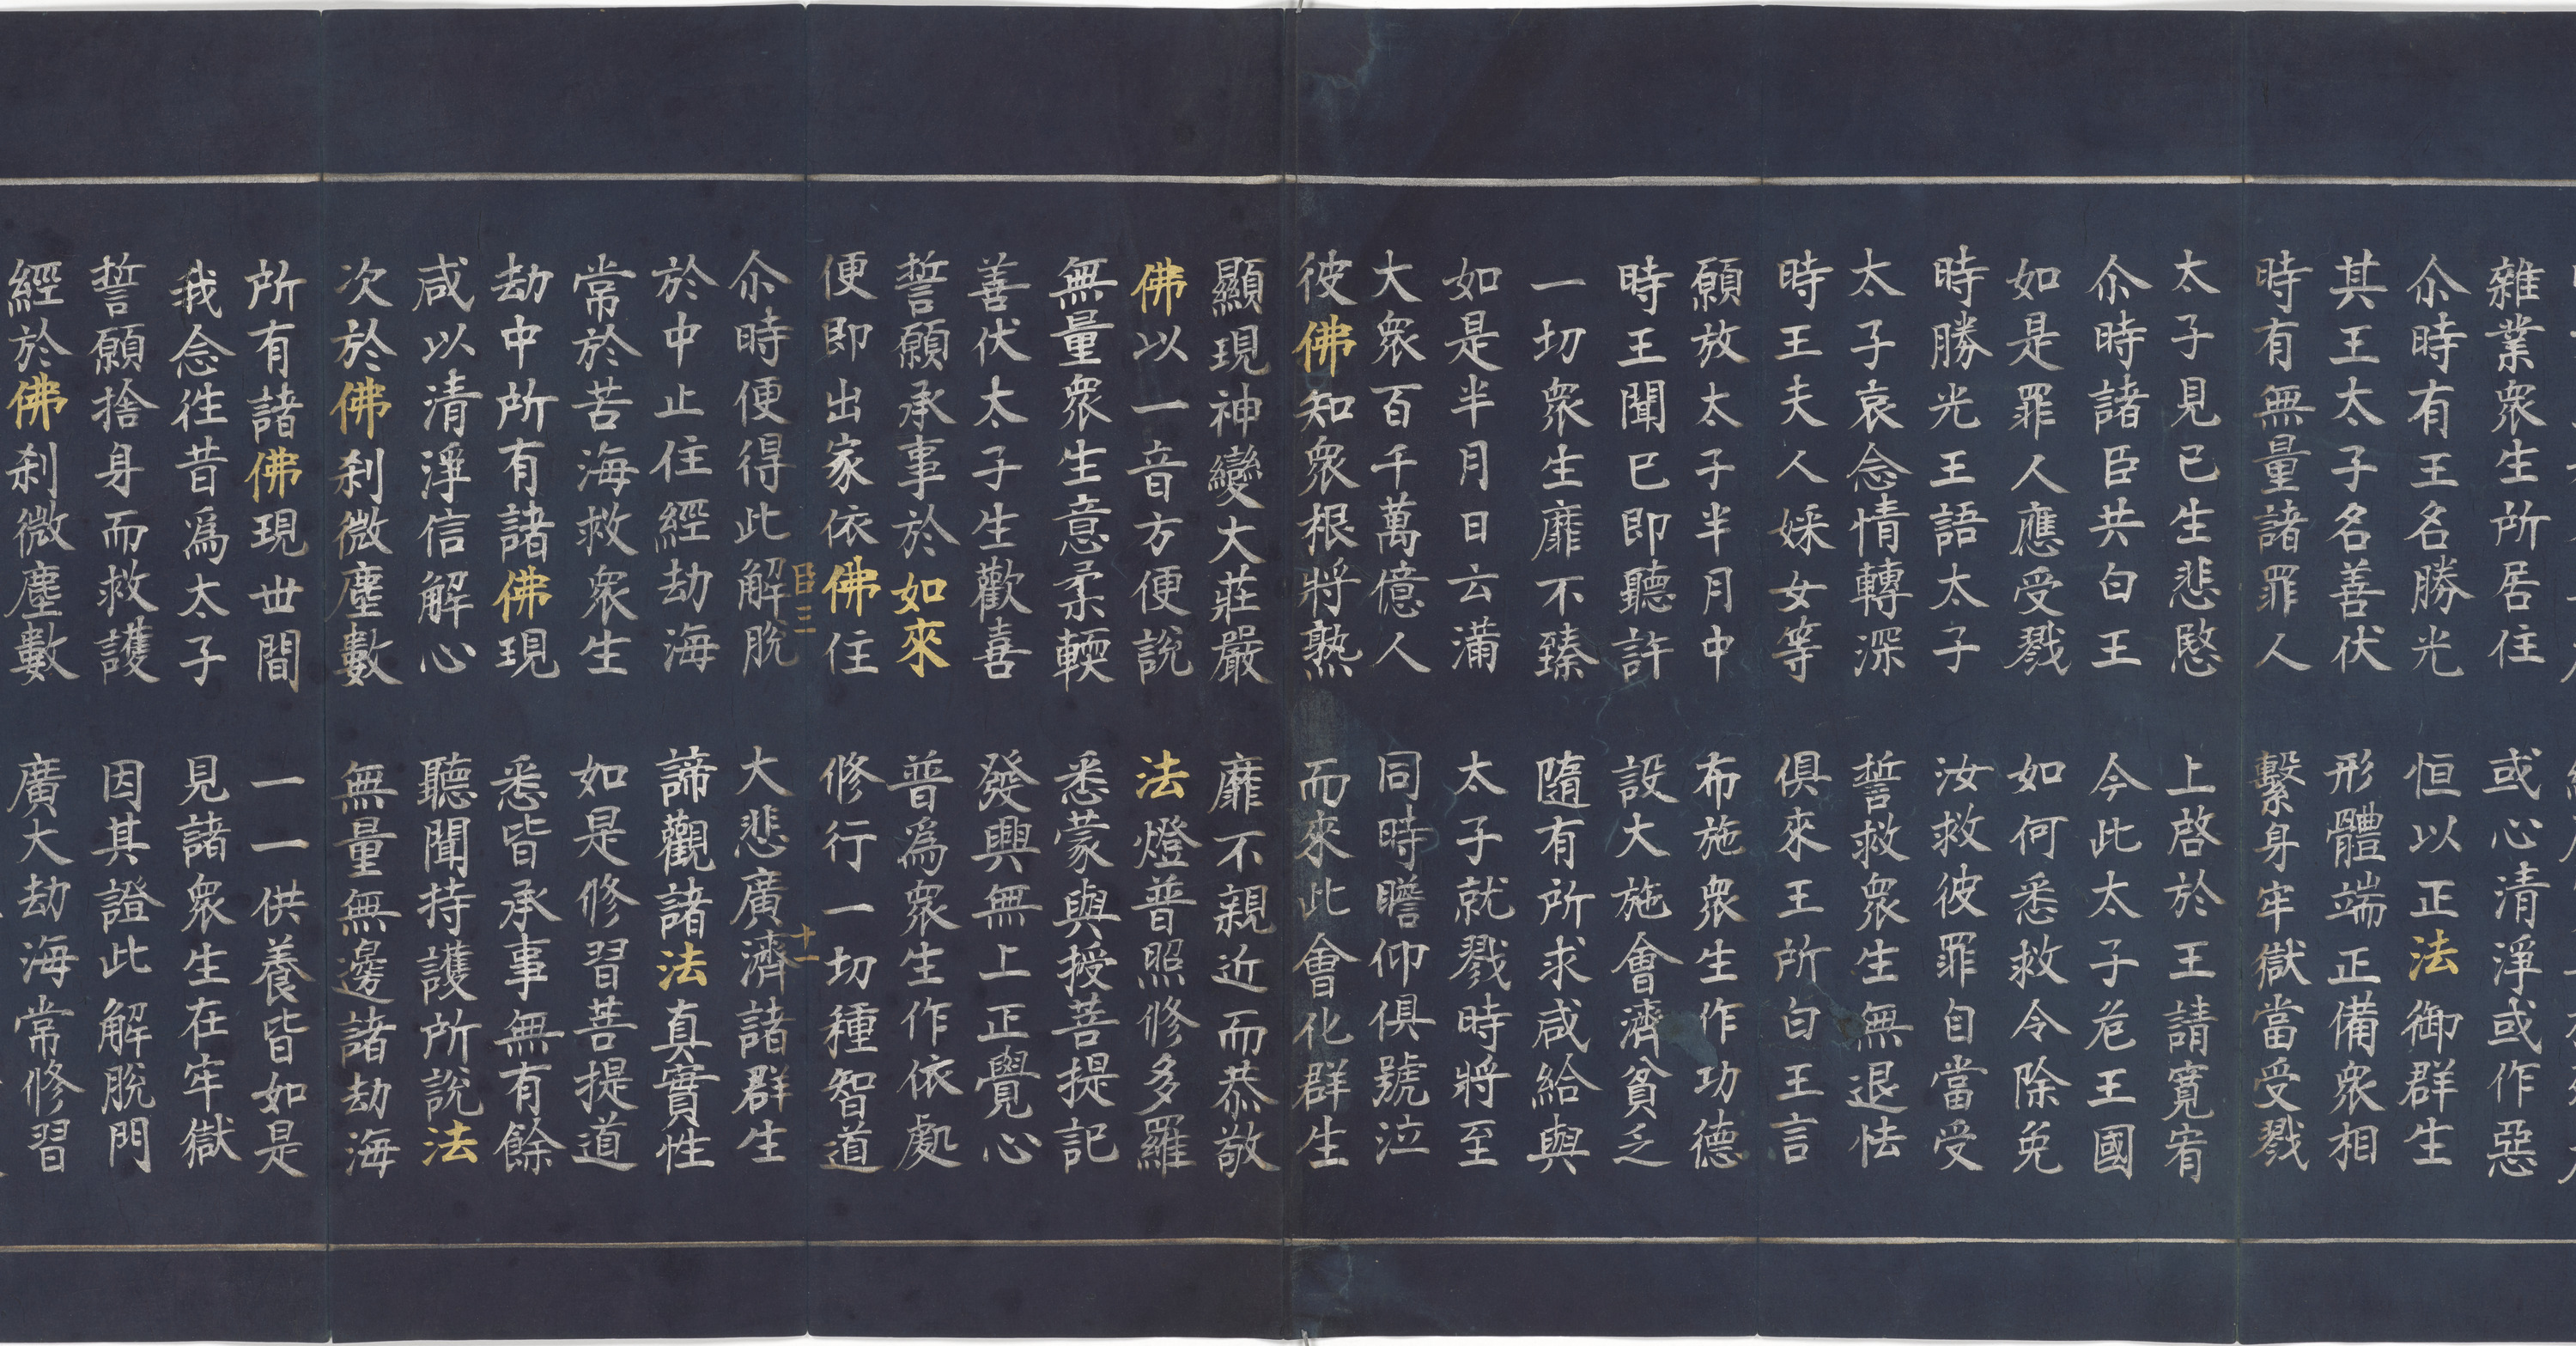 雜業衆生所居住 或心清淨或作惡
尒時有王名勝光 恒以正法御群生
其王太子名善伏 形體端正備衆相
時有無量諸罪人 繫身牢獄當受戮
太子見已生悲愍 上啓於王請寬宥
尒時諸臣共白王 今此太子危王國
如是罪人應受戮 如何悉救令除免
時勝光王語太子 汝救彼罪自當受
太子哀念情轉深 誓救衆生無退怯
時王夫人婇女等 俱來王所白王言
願放太子半月中 布施衆生作功德
時王聞已即聽許 設大施會濟貧乏
一切衆生靡不臻 隨有所求咸給與
如是半月日云滿 太子就戮時將至
大衆百千萬億人 同時瞻仰俱號泣
彼佛知衆根將熟 而來此會化群生
顯現神變大莊嚴 靡不親近而恭敬
佛以一音方便說 法燈普照修多羅
無量衆生意柔輭 悉蒙與授菩提記
善伏太子生歡喜 發興無上正覺心
誓願承事於如來 普爲衆生作依處
便即出家依佛住 修行一切種智道
臣三 十一
尒時便得此解脫 大悲廣濟諸群生
於中止住經劫海 諦觀諸法真實性
常於苦海救衆生 如是修習菩提道
劫中所有諸佛現 悉皆承事無有餘
咸以清淨信解心 聽聞持護所說法
次於佛刹微塵數 無量無邊諸劫海
所有諸佛現世間 一一供養皆如是
我念往昔爲太子 見諸衆生在牢獄
誓願捨身而救護 因其證此解脫門
經於佛刹微塵數 廣大劫海常修習